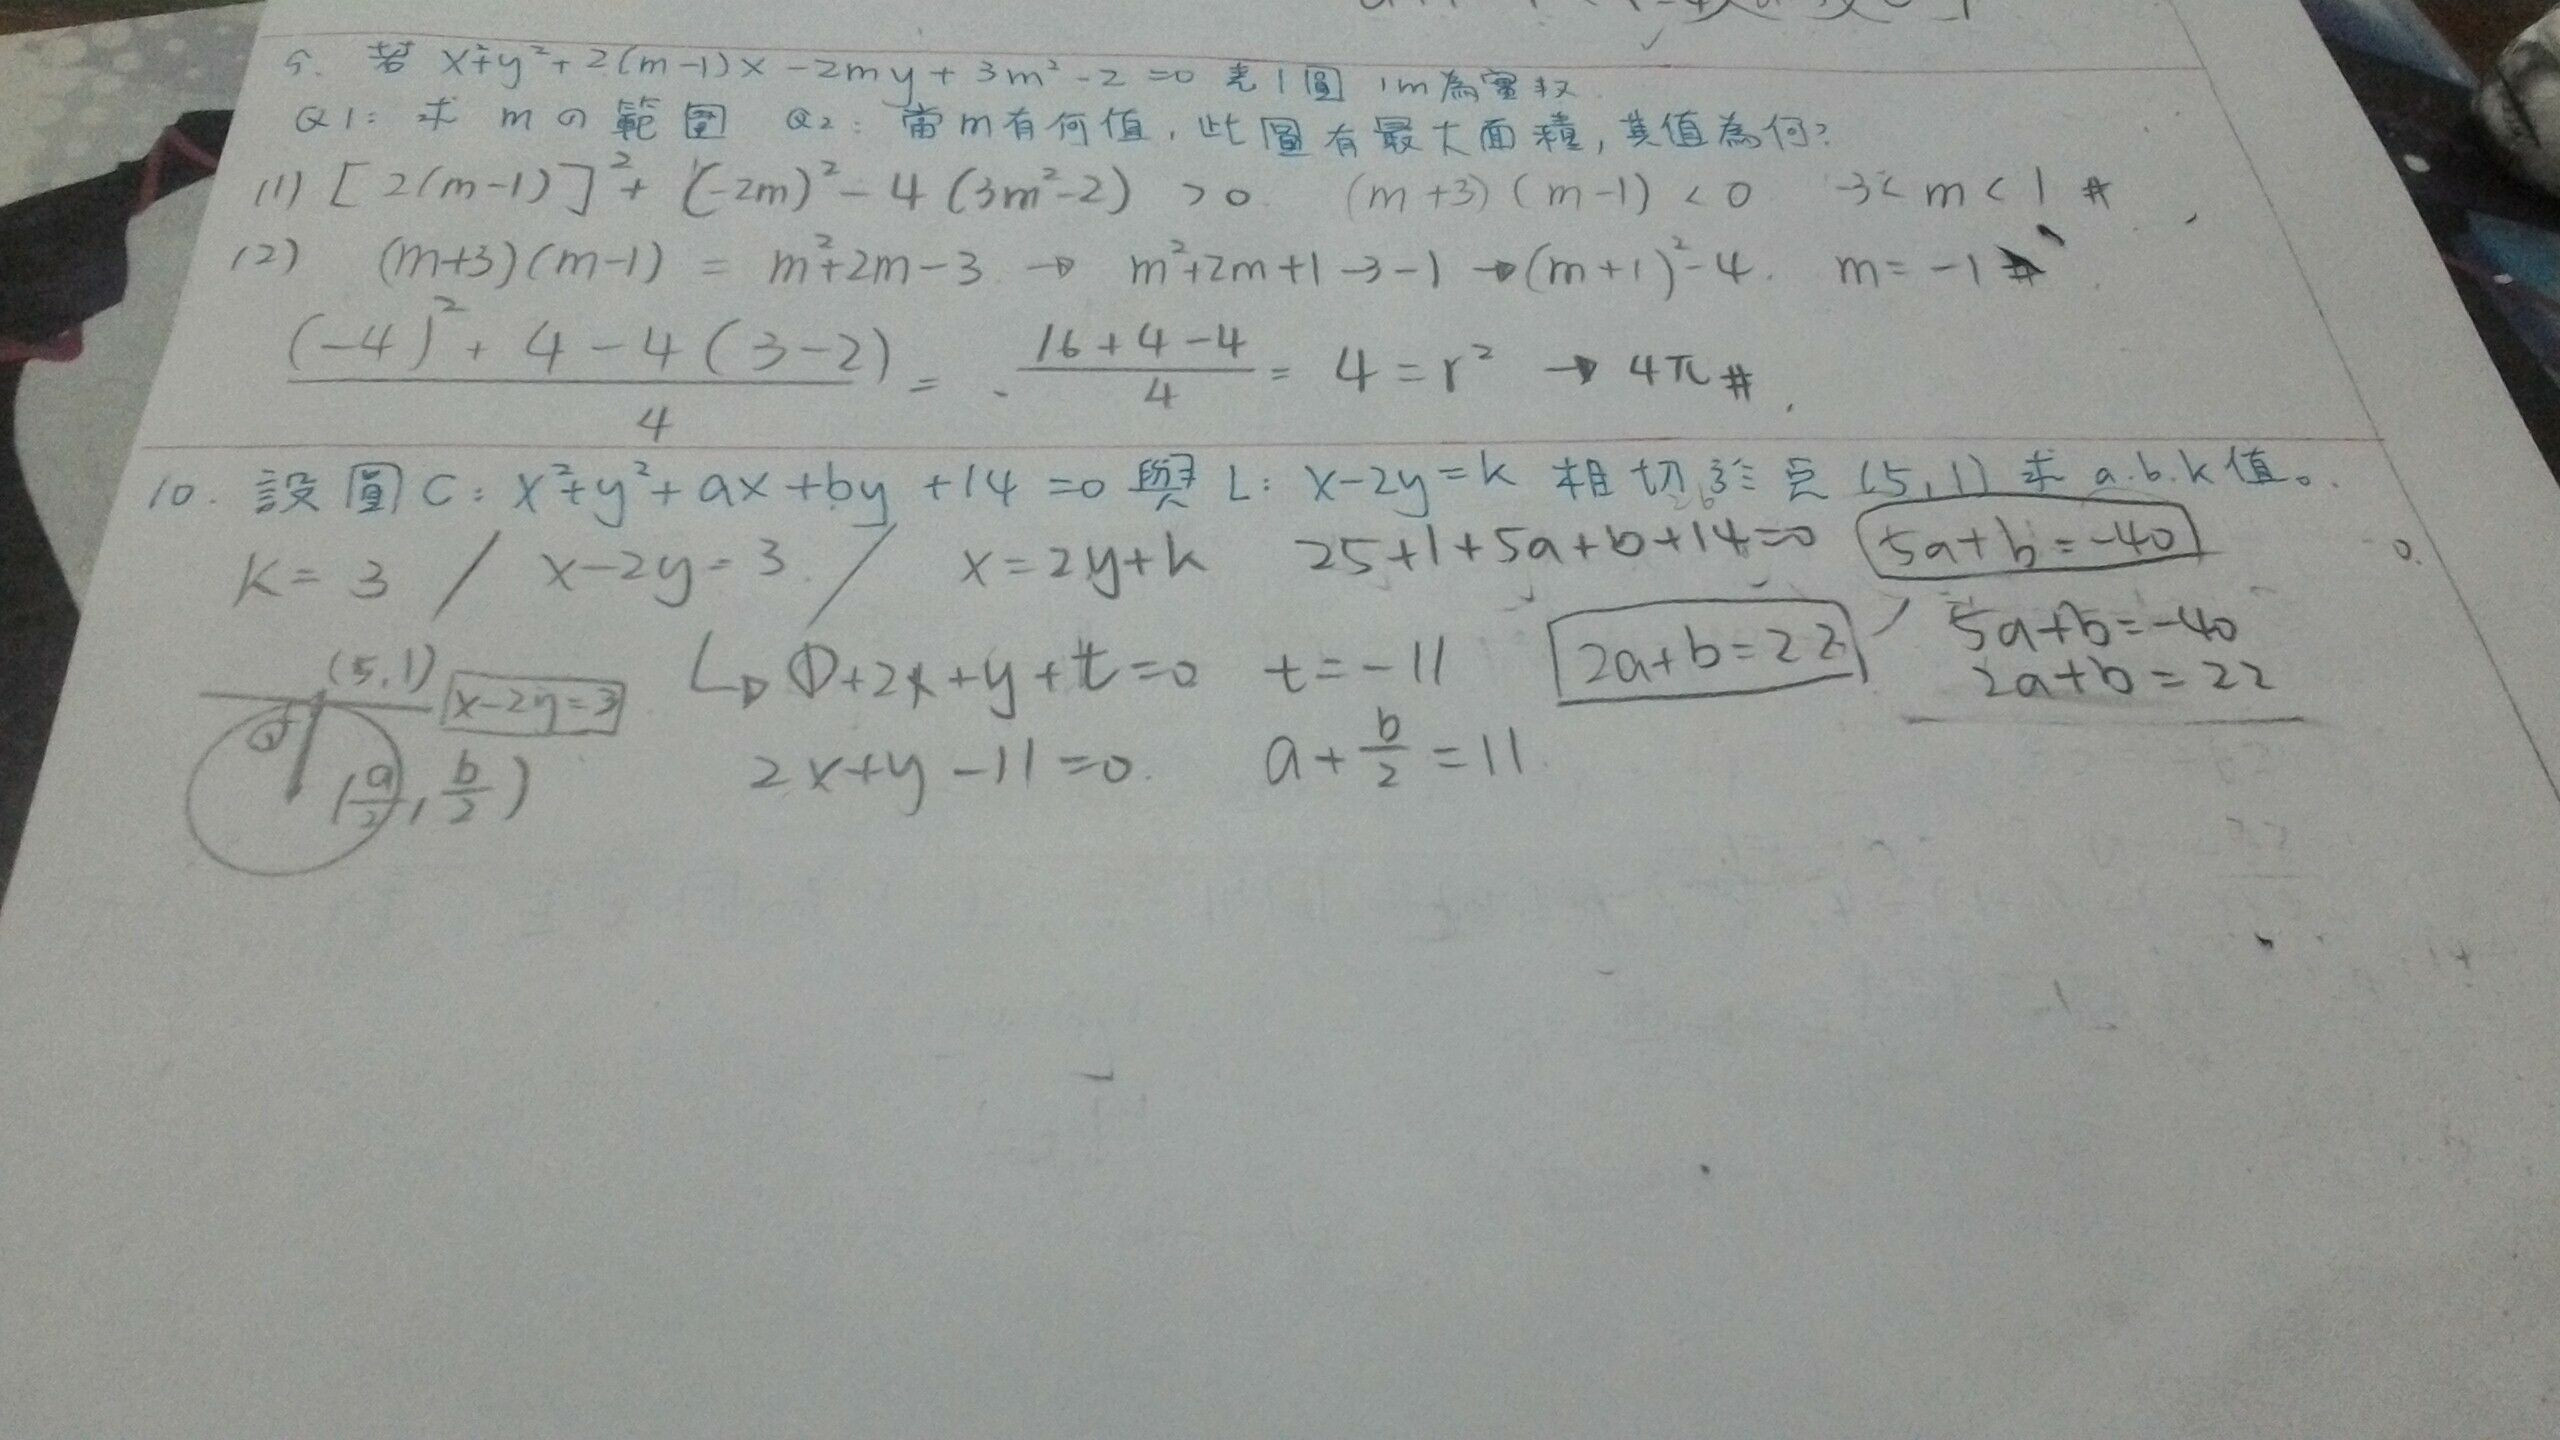 9. 若 x²+y²+2(m-1)x-2my+3m²-2=0 表1圓,m為實数
Q1: 求 m の 範圍 Q2: 當m有何值,此圓有最大面積,其值為何?
(1) [2(m-1)]²+(-2m)²-4(3m²-2)>0 (m+3)(m-1)<0 -3<m<1 #
(2) (m+3)(m-1)=m²+2m-3 → m²+2m+1-3-1 → (m+1)²-4. m=-1 #
(-4)²+4-4(3-2)/4 = 16+4-4/4 = 4=r² → 4π #
10. 設圓C: x²+y²+ax+by+14=0 與 L: x-2y=k 相切於点(5,1) 求 a.b.k值。
k=3 / x-2y=3 / x=2y+k 25+1+5a+b+14=0 5a+b=-40
(5,1) x-2y=3 ↳ ⊕+2x+y+t=0 t=-11 2a+b=22 5a+b=-40
2a+b=22
(a/2, b/2) 2x+y-11=0. a+b/2=11